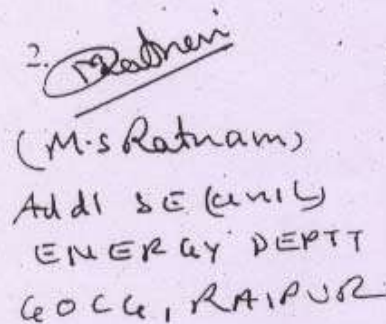 2. MRatnam
(M.S Ratnam)
Addl SE (Civil)
ENERGY DEPTT
GOCG, RAIPUR